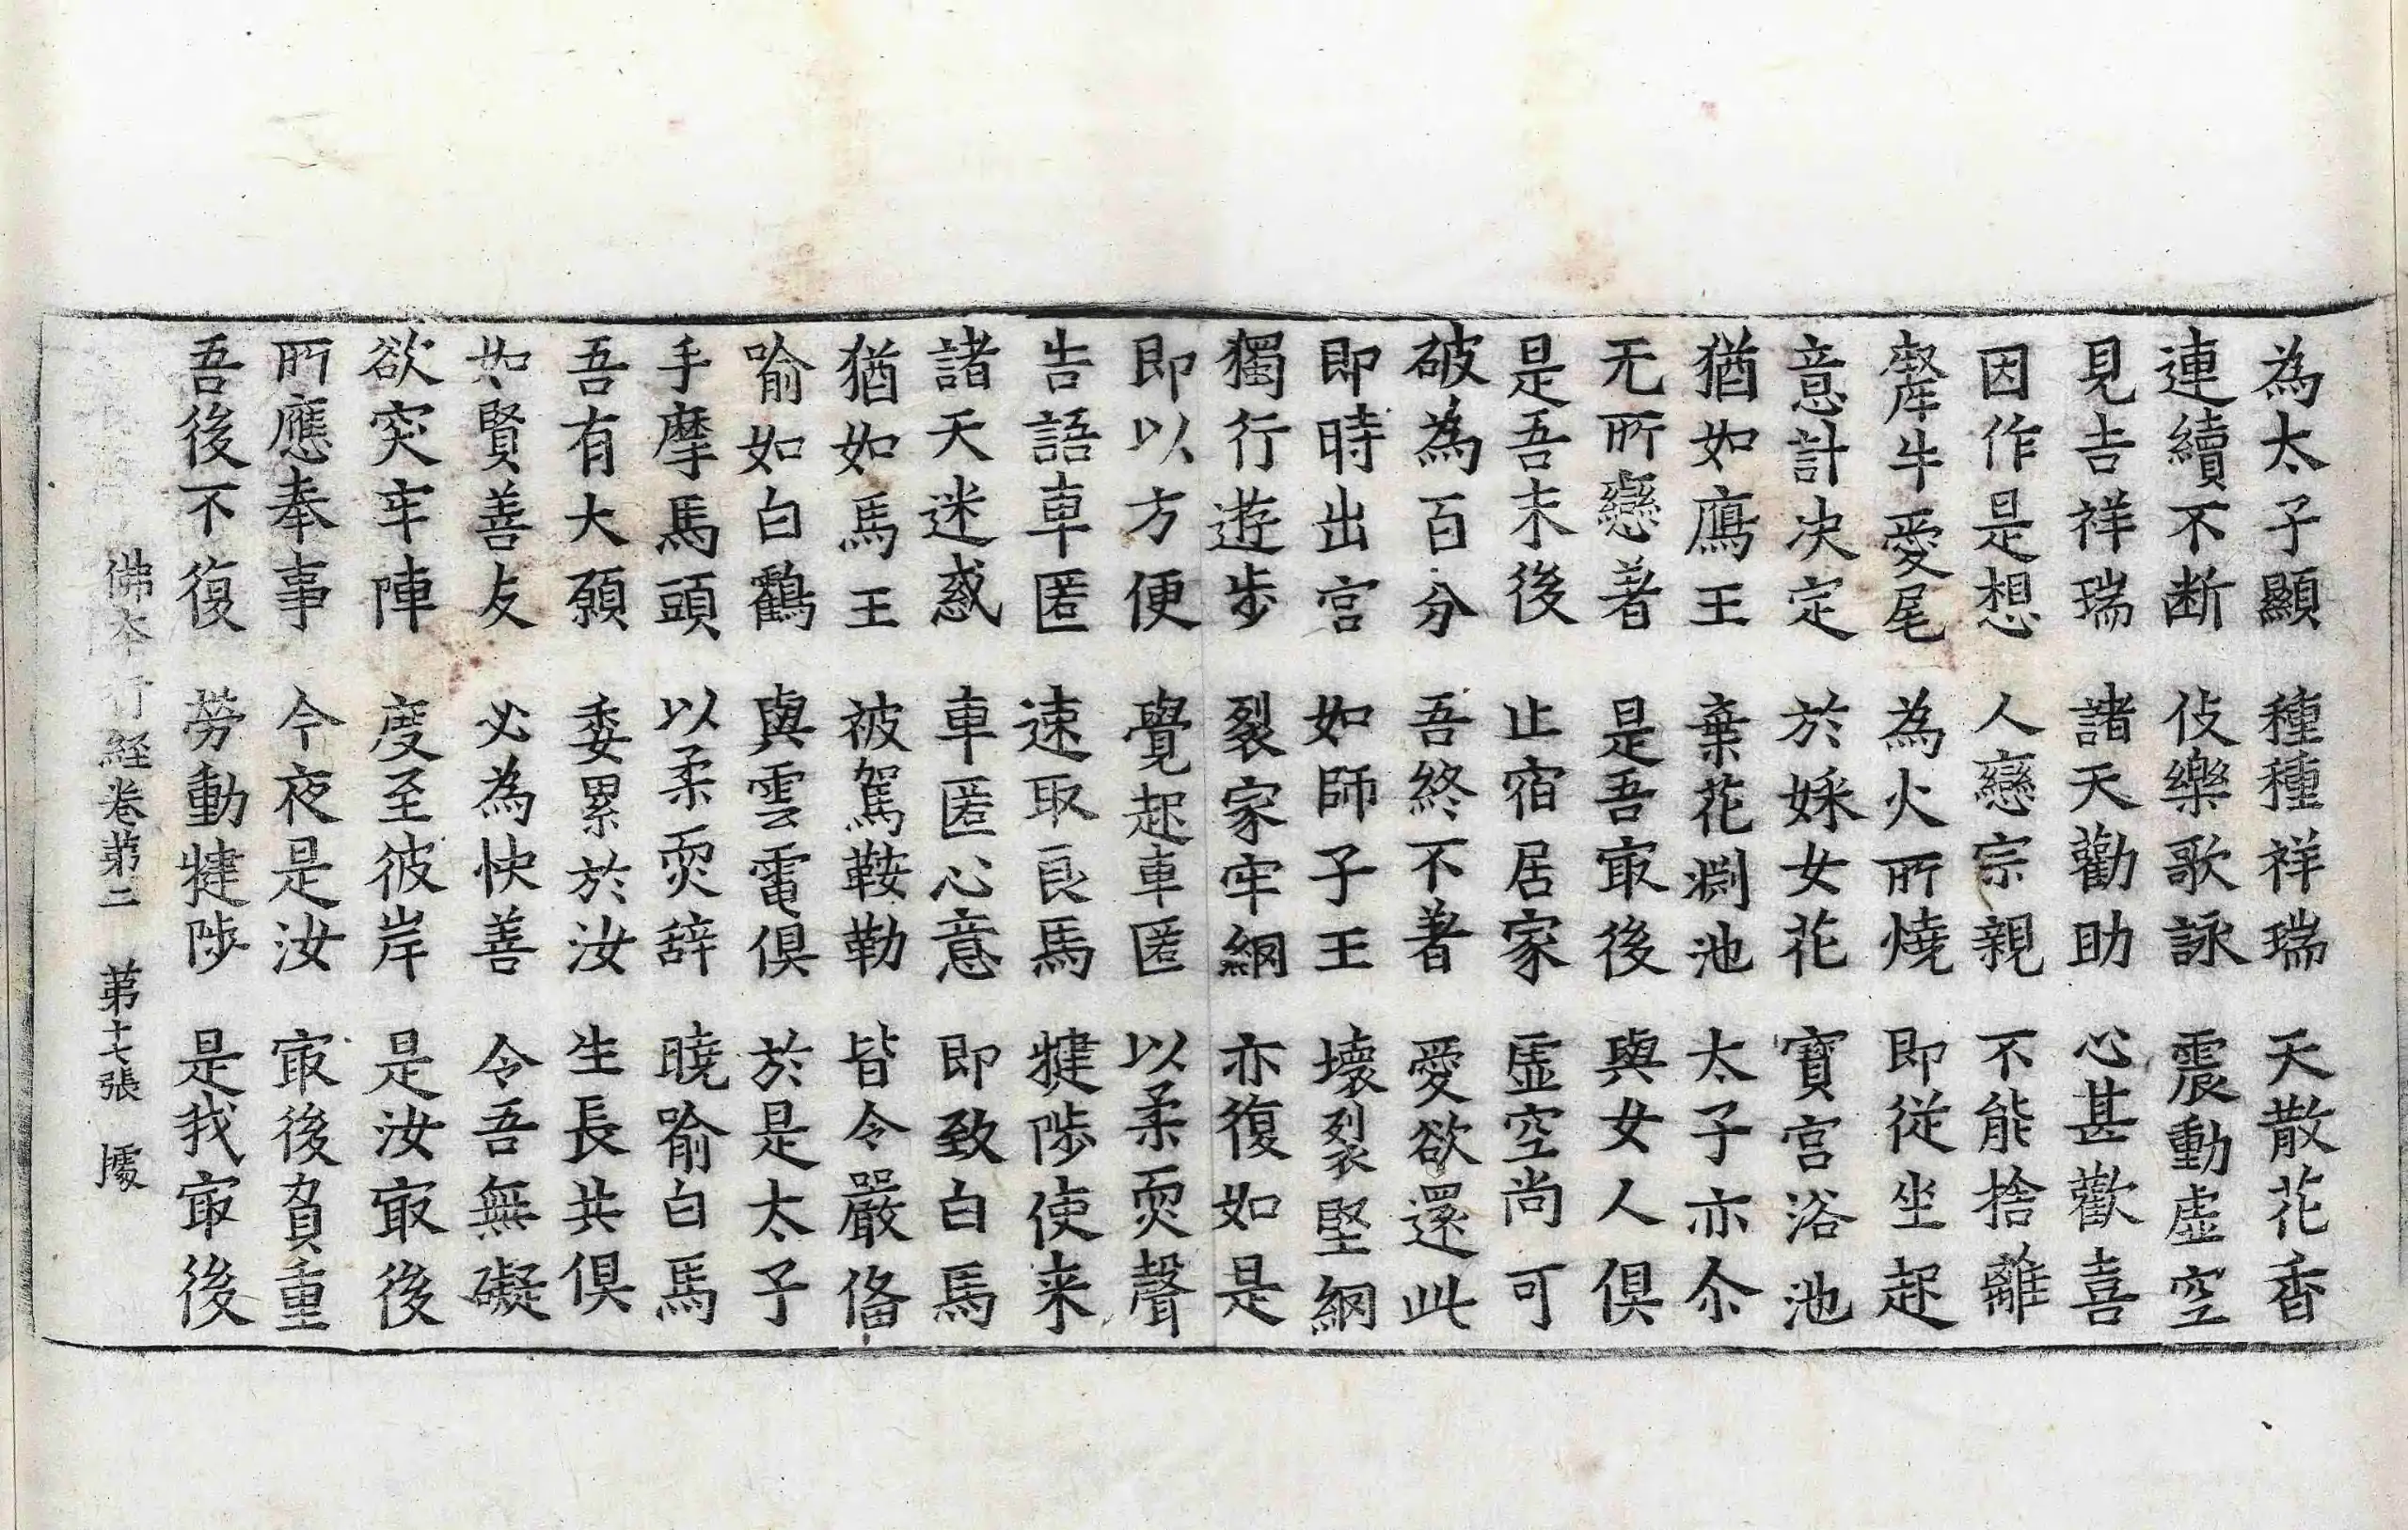 為太子顯 種種祥瑞 天散花香
連續不断 伎樂歌詠 震動虛空
見吉祥瑞 諸天勸助 心甚歡喜
因作是想 人戀宗親 不能捨離
犛牛愛尾 為火所燒 即従坐起
意計决定 於婇女花 寶宮浴池
猶如鴈王 棄花渕池 太子亦尒
无所戀著 是吾㝡後 與女人俱
是吾末後 止宿居家 虛空尚可
破為百分 吾終不著 愛欲還此
即時出宮 如師子王 壞裂堅網
獨行遊步 裂家牢網 亦復如是
即以方便 覺起車匿 以柔耎聲
告語車匿 速取良馬 揵陟使来
諸天迷惑 車匿心意 即致白馬
猶如馬王 被駕鞍勒 皆令嚴俻
喻如白鶴 與雲電俱 於是太子
手摩馬頭 以柔耎辞 曉喻白馬
吾有大願 委累於汝 生長共俱
如賢善友 必為快善 令吾無礙
欲突牢陣 度至彼岸 是汝㝡後
所應奉事 今夜是汝 㝡後負重
吾後不復 勞動揵陟 是我㝡後
佛本行經卷第二 第十七張